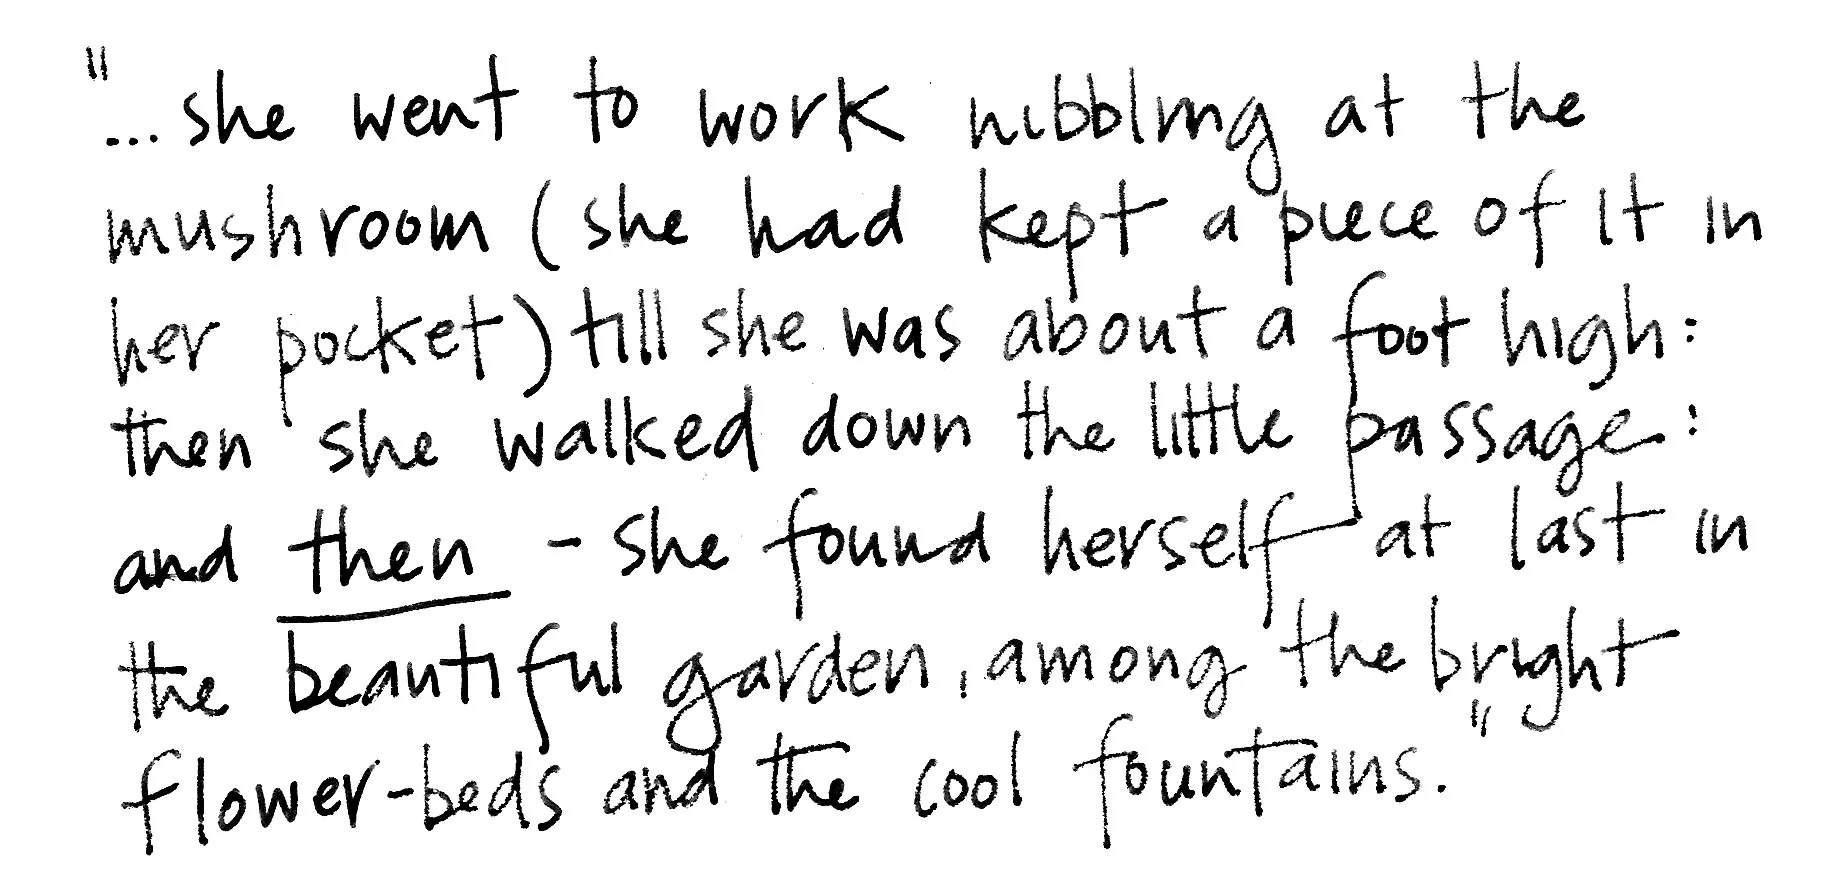 "...she went to work nibbling at the
mushroom (she had kept a piece of it in
her pocket) till she was about a foot high:
then she walked down the little passage:
and then - she found herself at last in
the beautiful garden, among the bright
flower-beds and the cool fountains."